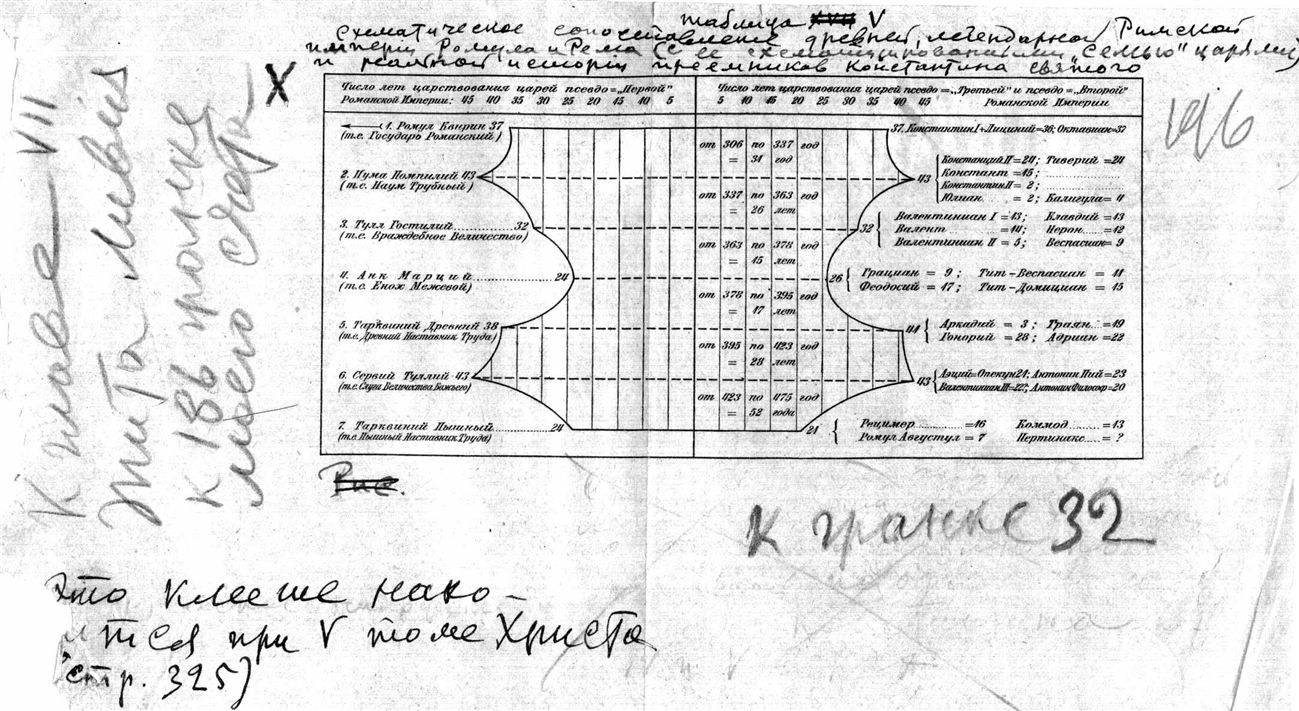 таблица XVII V
Схематическое сопоставление древней легендарной Римской
империи Ромула и Рема (с ее схематизированными „Семью" царями)
и реальной истории преемников Константина святого
X
К главе VII
Тита Ливия
К 186 гранке
моего счета
196
Число лет царствования царей псевдо=„Первой"
Романской Империи: 45 40 35 30 25 20 15 10 5
Число лет царствования царей псевдо=„Третьей" и псевдо=„Второй"
5 10 15 20 25 30 35 40 45 Романской Империи
1. Ромул Квирин 37
(т.е. Государь Романский)
2. Нума Помпилий 43
(т.е. Наум Трубный)
3. Тулл Гостилий 32
(т.е. Враждебное Величество)
4. Анк Марций 24
(т.е. Енох Межевой)
5. Тарквиний Древний 38
(т.е. Древний Наставник Труда)
6. Сервий Туллий 43
(т.е. Слуга Величества Божьего)
7. Тарквиний Пышный 24
(т.е. Пышный Наставник Труда)
от 306 по 337 год
= 31 год
от 337 по 363 год
= 26 лет
от 363 по 378 год
= 15 лет
от 378 по 395 год
= 17 лет
от 395 по 423 год
= 28 лет
от 423 по 475 год
= 52 года
37, Константин I + Лициний = 36; Октавиан = 37
43
Констанций II = 24; Тиверий = 24
Констант = 15;
Константин II = 2;
Юлиан = 2; Калигула = 4
32
Валентиниан I = 13; Клавдий = 13
Валент = 14; Нерон = 12
Валентиниан II = 5; Веспасиан = 9
26
Грациан = 9; Тит-Веспасиан = 11
Феодосий = 17; Тит-Домициан = 15
41
Аркадий = 3; Траян = 19
Гонорий = 28; Адриан = 22
43
Аэций = Опекун 21; Антонин Пий = 23
Валентиниан III = 22; Антонин Философ = 20
21
Рецимер = 16 Коммод = 13
Ромул Августул = 7 Пертинакс = ?
Рис.
К гранке 32
Это клеше нахо-
ится при V томе Христа
стр. 325)